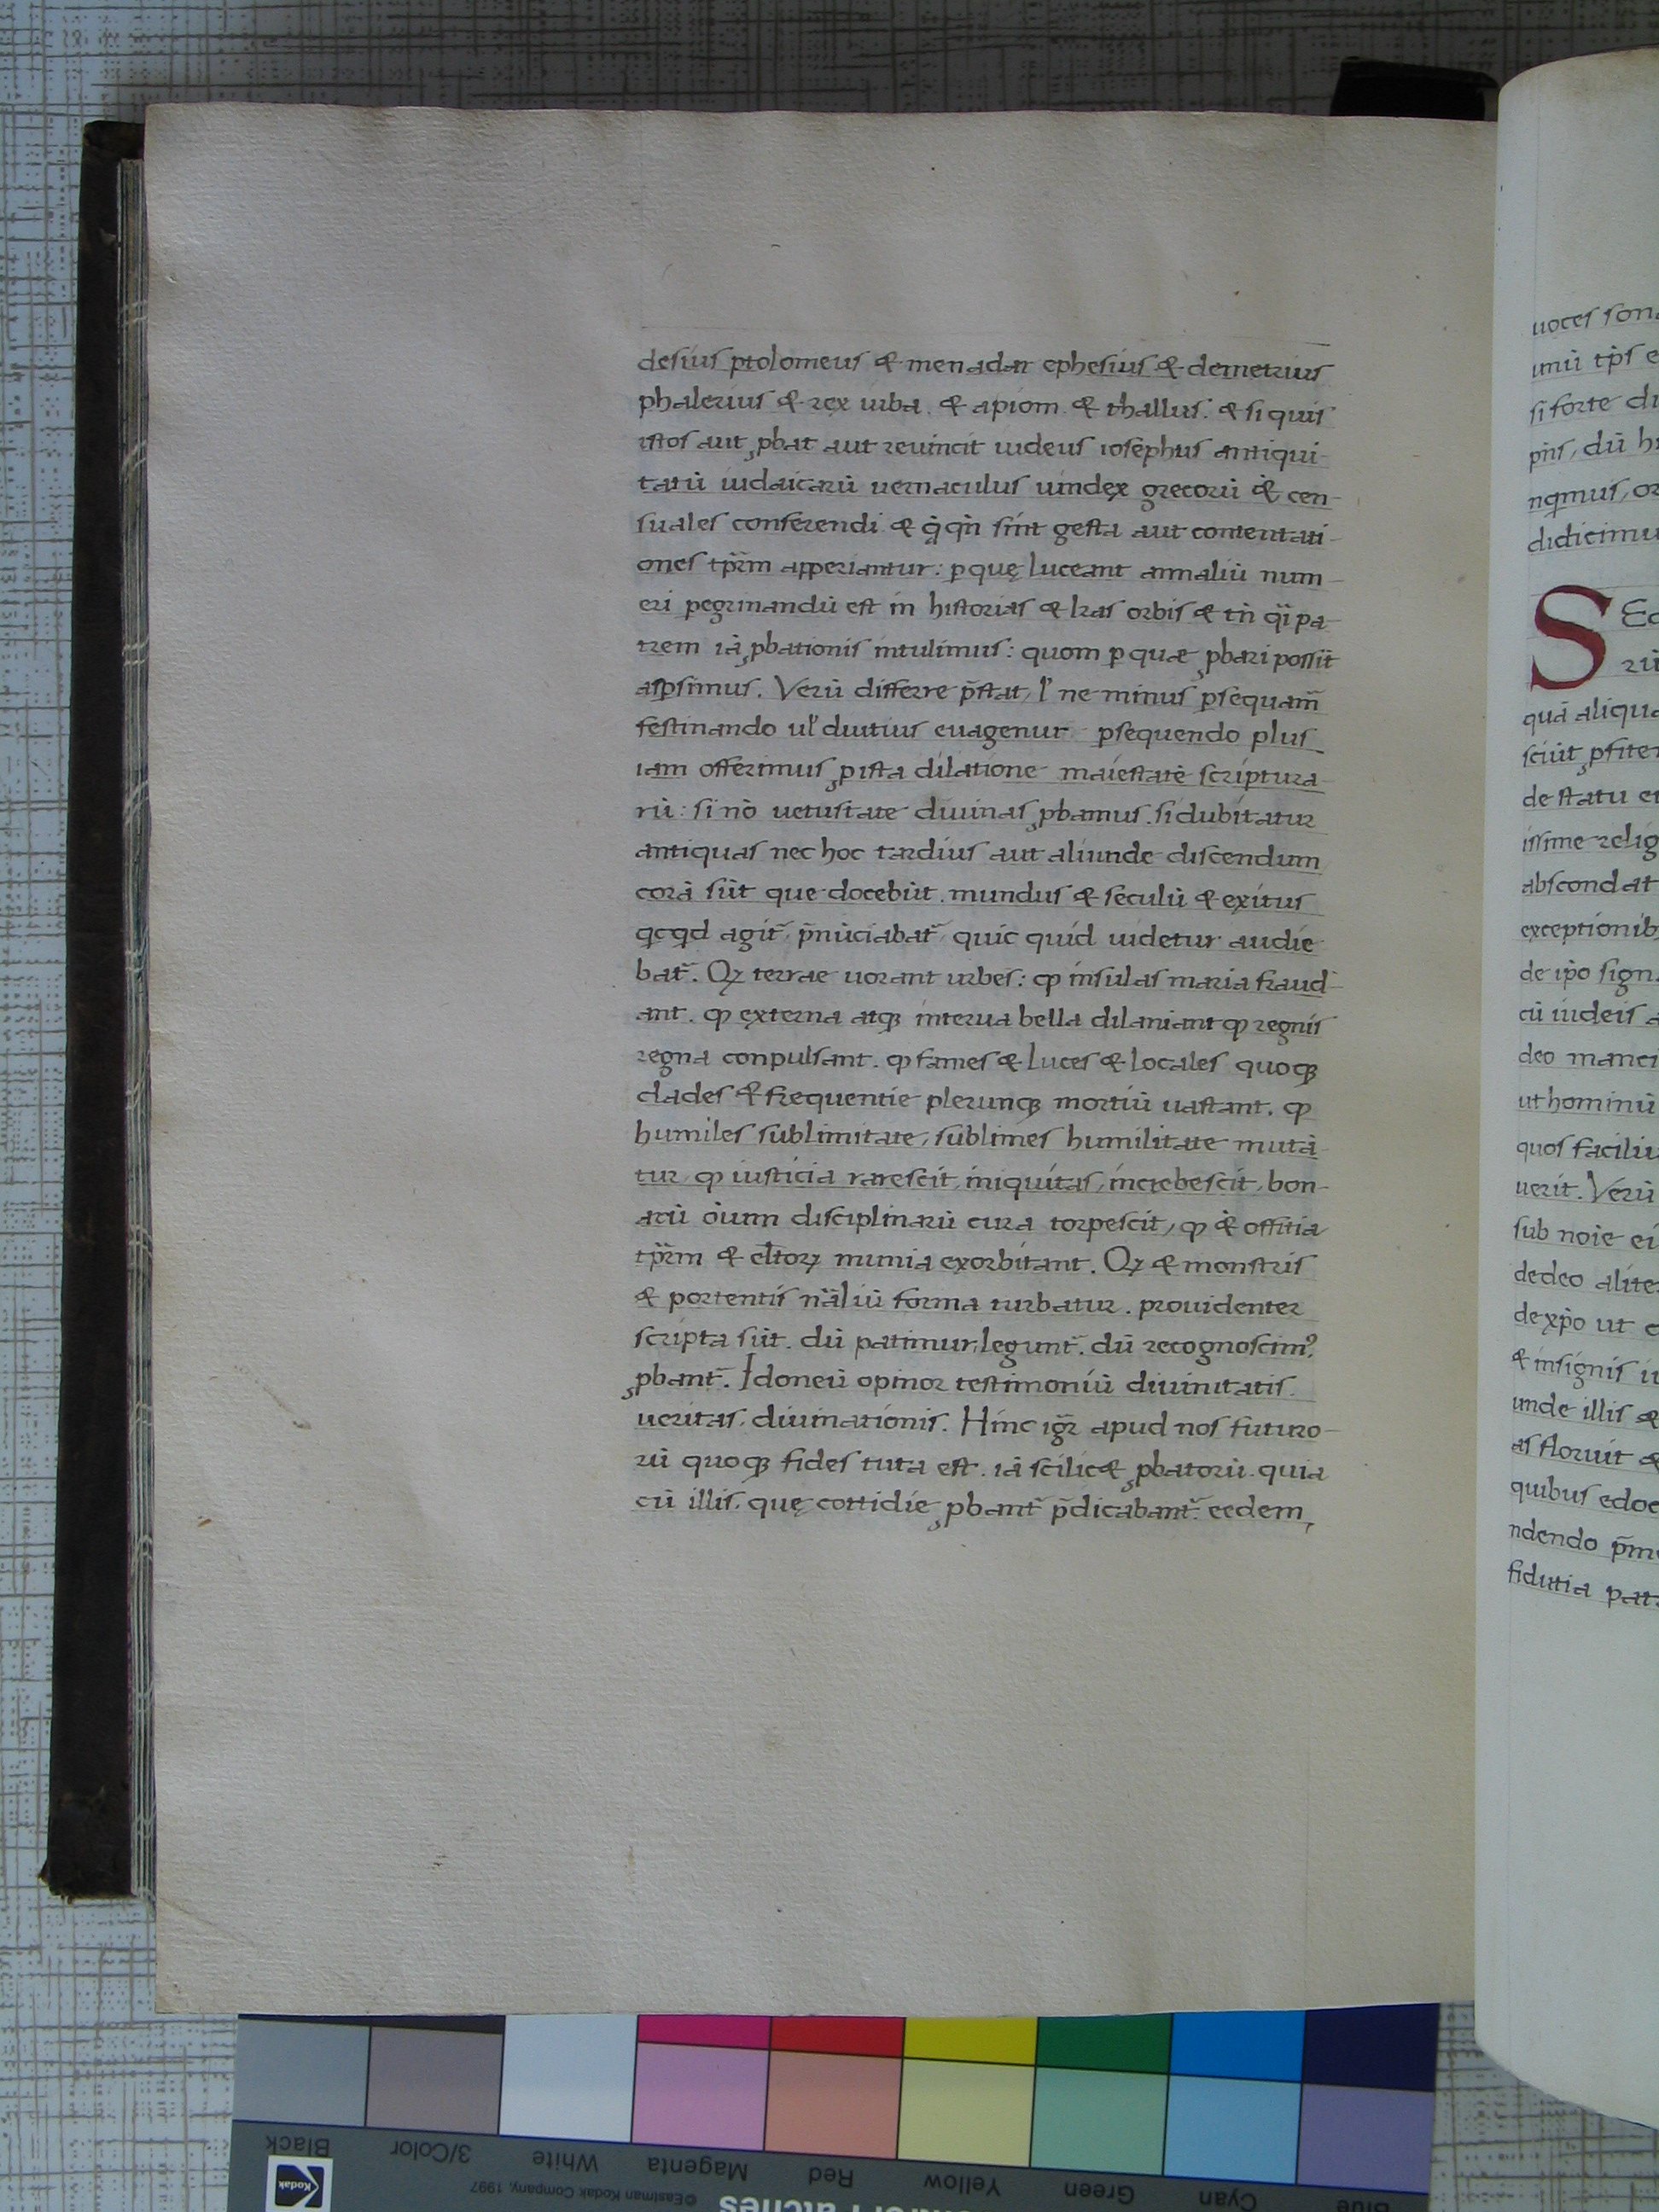 desius ptolomeus & menadar ephesius & demetrius
phalerius & rex iuba. & apiom & thallus. & si quis
istos aut ꝓbat aut reuincit iudeus iosephus antiqui-
tatū iudaicarū uernaculus uindex grecorū & cen-
suales conferendi & q̄ qn̄ sint gesta aut contentati-
ones tp̄rm apperiantur: ꝑ quę luceant annaliū num-
eri ꝑegrinandū est in historias & lr̄as orbis & tn̄ q̄i pa-
trem iā ꝓbationis intulimus: quom ꝑ quæ ꝓbari possīt
aspsimus. Verū differre p̄stat, l' ne minus ꝑsequam̄
festinando ul' diutius euagenur ꝑsequendo plus
iam offerimus ꝓ ista dilatione maiestatē scriptura-
rū: si nō uetustate diuinas ꝓbamus. si dubitatur
antiquas nec hoc tardius aut aliunde discendum
corā sūt que docebūt. mundus & seculū & exitus
qcqd agit̄, p̄nūciabat̄, quic quid uidetur audie
bat̄. Qꝫ terrae uorant urbes: ꝙ insulas maria fraud-
ant. ꝙ externa atqꝫ interua bella dilaniant ꝙ regnis
regna conpulsant. ꝙ fames & luces & locales quoqꝫ
clades & frequentie plerunqꝫ mortiū uastant. ꝙ
humiles sublimitate, sublimes humilitate mutā
tur, ꝙ iusticia rarescit, iniquitas, increbescit, bon-
arū ōium disciplinarū cura torpescit, ꝙ & offitia
tp̄rm & elt̄oꝝ munia exorbitant. Qꝫ & monstris
& portentis nāliū forma turbatur. prouidenter
scripta sūt. dū patimur, legunt̄. dū recognoscimꝰ,
ꝓbant̄. Idoneū opinor testimoniū diuinitatis.
ueritas, diuinationis. Hinc igr̄ apud nos futuro-
rū quoqꝫ fides tuta est. iā scilic& ꝓbatorū. quia
cū illis, quę cottidie ꝓbant̄ p̄dicabant̄. eedem,
uoces son
unū tp̄s e
si forte di
didicimu
S Ec
rū
quā aliqua
sciūt ꝓfite
de statu e
issime relig
abscondat
exceptionib
de ip̄o sign
cū iudeis a
deo manci
ut hominū
quos faciliu
uerit. Verū
sub noīe ei
de deo alite
de xp̄o ut c
& insignis iu
unde illis &
as floruit &
quibus edoc
ndendo p̄m
fidutia pat
Black
3/Color
White
Magenta
Red
Yellow
Green
Cyan
Blue
©Eastman Kodak Company, 1997
Kodak